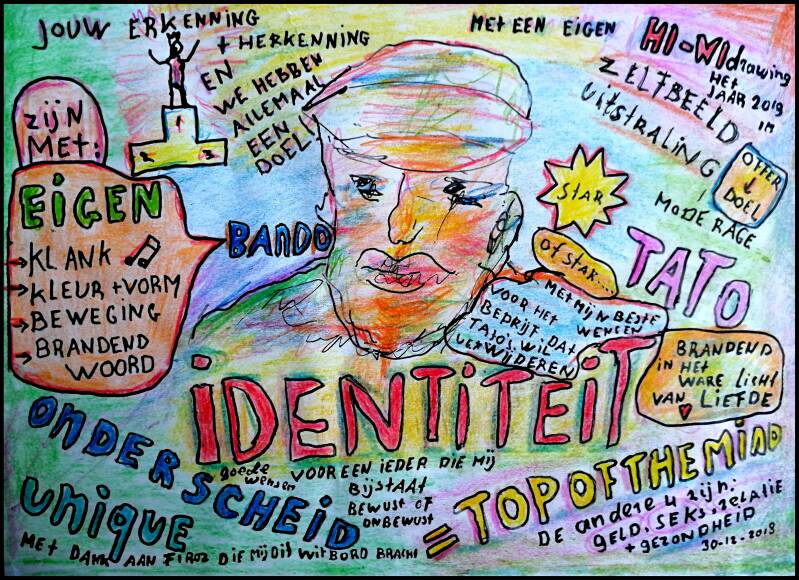 JOUW ERKENNING
+ HERKENNING
EN
WE HEBBEN
ALLEMAAL
EEN
DOEL!
1
2
3
MET EEN EIGEN
HI-WI drawing
HET
JAAR 2019
IN
ZELFBEELD
UITSTRALING
!
OFFER
↓
DOEL
MODE RAGE
STAR
OF STAR....
TATO
ZIJN
MET:
EIGEN
→ KLANK ♫
→ KLEUR + VORM
→ BEWEGING
→ BRANDEND
WOORD
BANDO
MET MIJN BESTE
WENSEN
VOOR HET
BEDRIJF DAT
TATO'S WIL
VERWIJDEREN
BRANDEND
IN HET
WARE LICHT
VAN LIEFDE
IDENTITEIT
ONDERSCHEID
UNIQUE
goede
wensen
VOOR EEN IEDER DIE MIJ
BIJSTAAT
BEWUST OF
ONBEWUST
= TOP OF THE MIND
DE andere 4 ZIJN:
GELD, SEKS, RELATIE
+ GEZONDHEID
30-12-2018
MET DANK AAN FIROZ DIE MIJ DIT WITBORD BRACHT